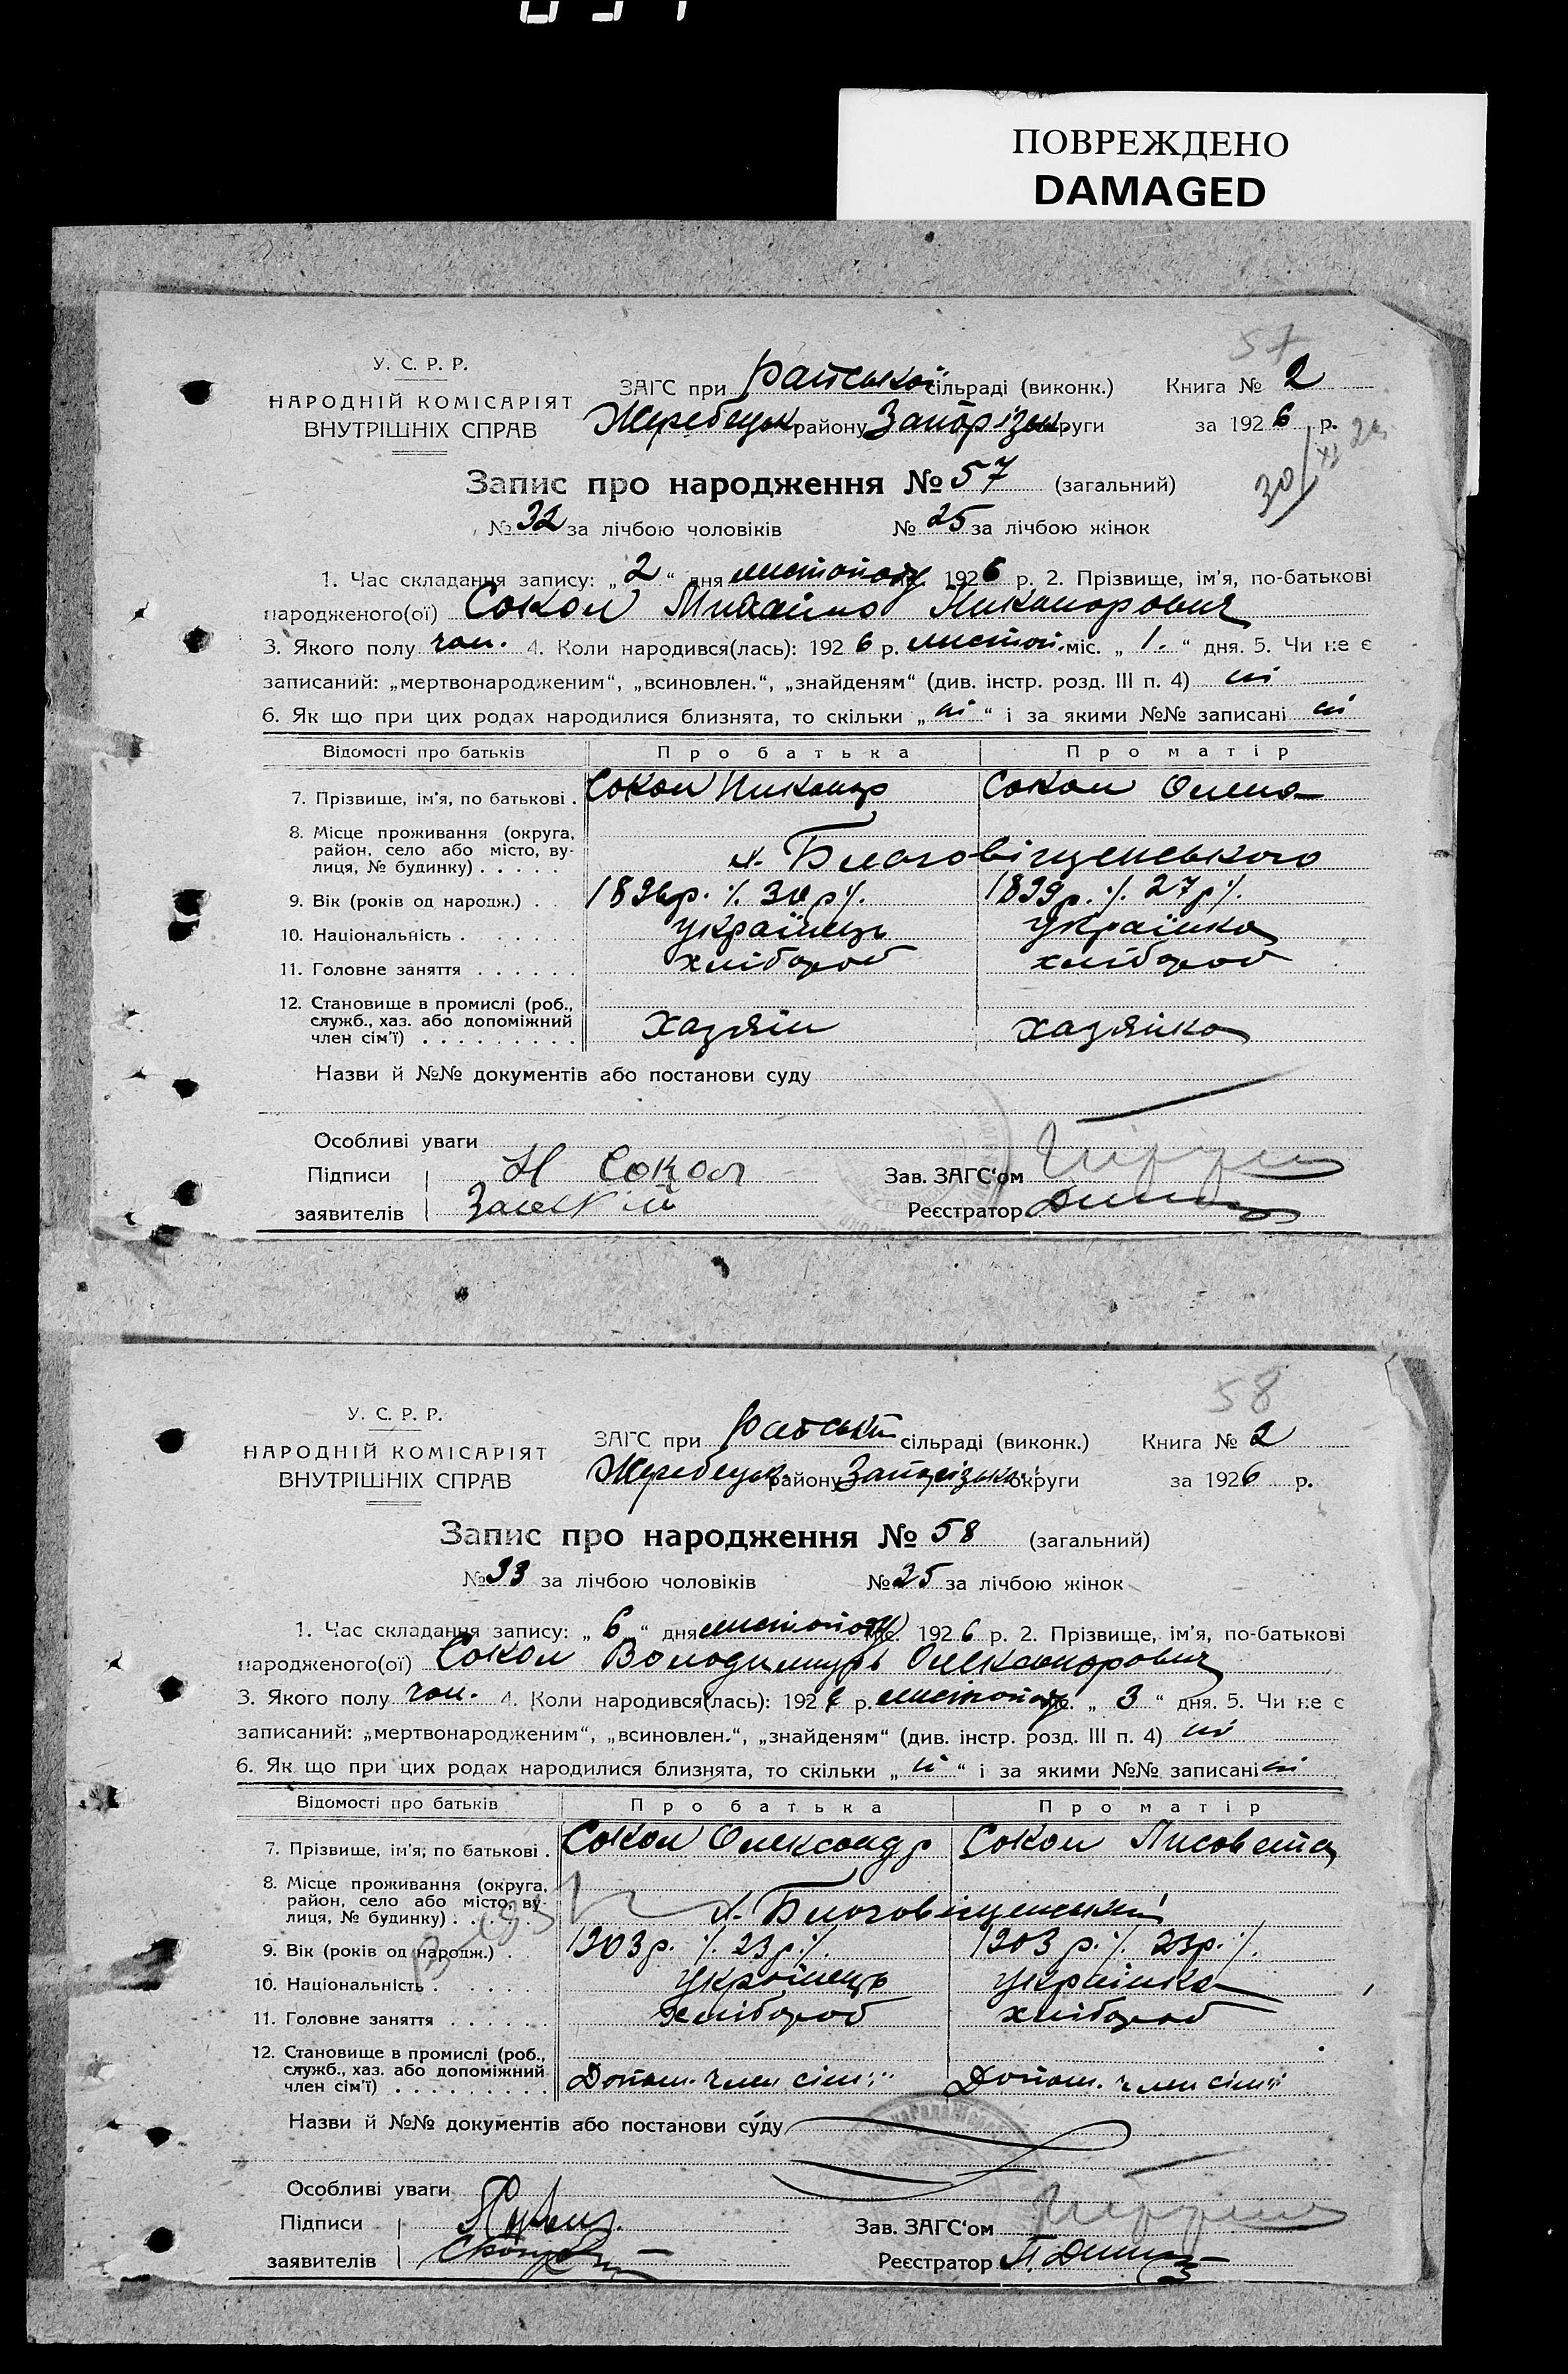 ПОВРЕЖДЕНО
DAMAGED
57
У. С. Р. Р.
НАРОДНІЙ КОМІСАРІЯТ
ВНУТРІШНІХ СПРАВ
ЗАГС при Райській сільраді (виконк.) Книга № 2
Жеребецьк. району Запорізьк. округи за 1926 р.
30/XI 26
Запис про народження № 57 (загальний)
№ 32 за лічбою чоловіків № 25 за лічбою жінок
1. Час складання запису: „2“ дня листопаду міс. 1926 р. 2. Прізвище, ім'я, по-батькові
народженого(ої) Сокол Михайло Никанорович
3. Якого полу чол. 4. Коли народився(лась): 1926 р. листоп. міс. „1.“ дня. 5. Чи не є
записаний: „мертвонародженим“, „всиновлен.“, „знайденям“ (див. інстр. розд. III п. 4) ні
6. Як що при цих родах народилися близнята, то скільки „ні“ і за якими №№ записані ні
Відомості про батьків Про батька Про матір
7. Прізвище, ім'я, по батькові . Сокол Никанор Сокол Олена
8. Місце проживання (округа,
район, село або місто, ву-
лиця, № будинку) . . . . . х. Благовіщенського
9. Вік (років од народж.) . . 1896р. ·/. 30 р ·/. 1899р. ·/. 27 р ·/.
10. Національність . . . . . . українець українка
11. Головне заняття . . . . . . хлібороб хлібороб
12. Становище в промислі (роб.,
служб., хаз. або допоміжний
член сім'ї) . . . . . . . . . Хазяїн хазяйка
Назви й №№ документів або постанови суду
Особливі уваги
Підписи Н Сокол Зав. ЗАГС'ом
заявителів Реєстратор
58
У. С. Р. Р.
НАРОДНІЙ КОМІСАРІЯТ
ВНУТРІШНІХ СПРАВ
ЗАГС при Райській сільраді (виконк.) Книга № 2
Жеребецьк. району Запорізьк. округи за 1926 р.
Запис про народження № 58 (загальний)
№ 33 за лічбою чоловіків № 25 за лічбою жінок
1. Час складання запису: „6“ дня листопаду міс. 1926 р. 2. Прізвище, ім'я, по-батькові
народженого(ої) Сокол Володимирь Олександрович
3. Якого полу чол. 4. Коли народився(лась): 1926 р. листопаду міс. „3“ дня. 5. Чи не є
записаний: „мертвонародженим“, „всиновлен.“, „знайденям“ (див. інстр. розд. III п. 4) ні
6. Як що при цих родах народилися близнята, то скільки „ні“ і за якими №№ записані ні
Відомості про батьків Про батька Про матір
7. Прізвище, ім'я, по батькові . Сокол Олександр Сокол Лисовета
8. Місце проживання (округа,
район, село або місто, ву-
лиця, № будинку) . . . . . х. Благовіщенський
9. Вік (років од народж.) . 1903р. ·/. 23 р ·/. 1903 р. ·/. 23р. ·/.
10. Національність . . . . . українець українка
11. Головне заняття . . . . . . хлібороб хлібороб
12. Становище в промислі (роб.,
служб., хаз. або допоміжний
член сім'ї) . . . . . . . . . Допом. член сім'ї Допом. член сім'ї
Назви й №№ документів або постанови суду
Особливі уваги
Підписи Зав. ЗАГС'ом
заявителів Реєстратор